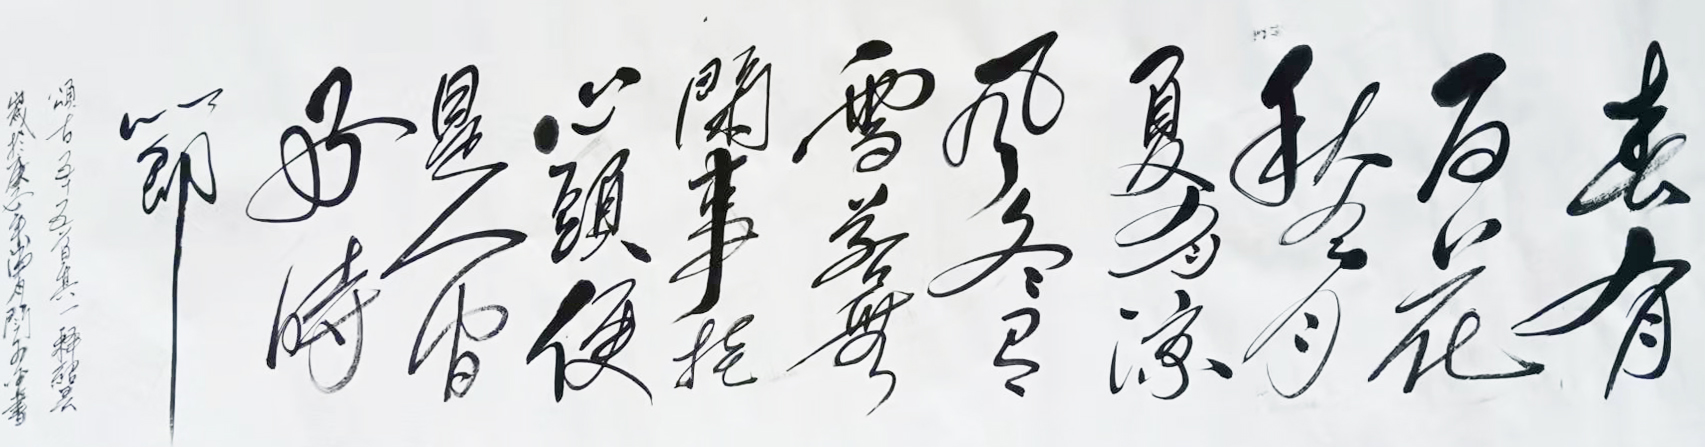 春有
百花
秋有月
夏有涼
風冬有
雪若無
閑事挂
心頭便
是人間
好時
節
頌古五十五首其一 釋紹曇
歲於 書